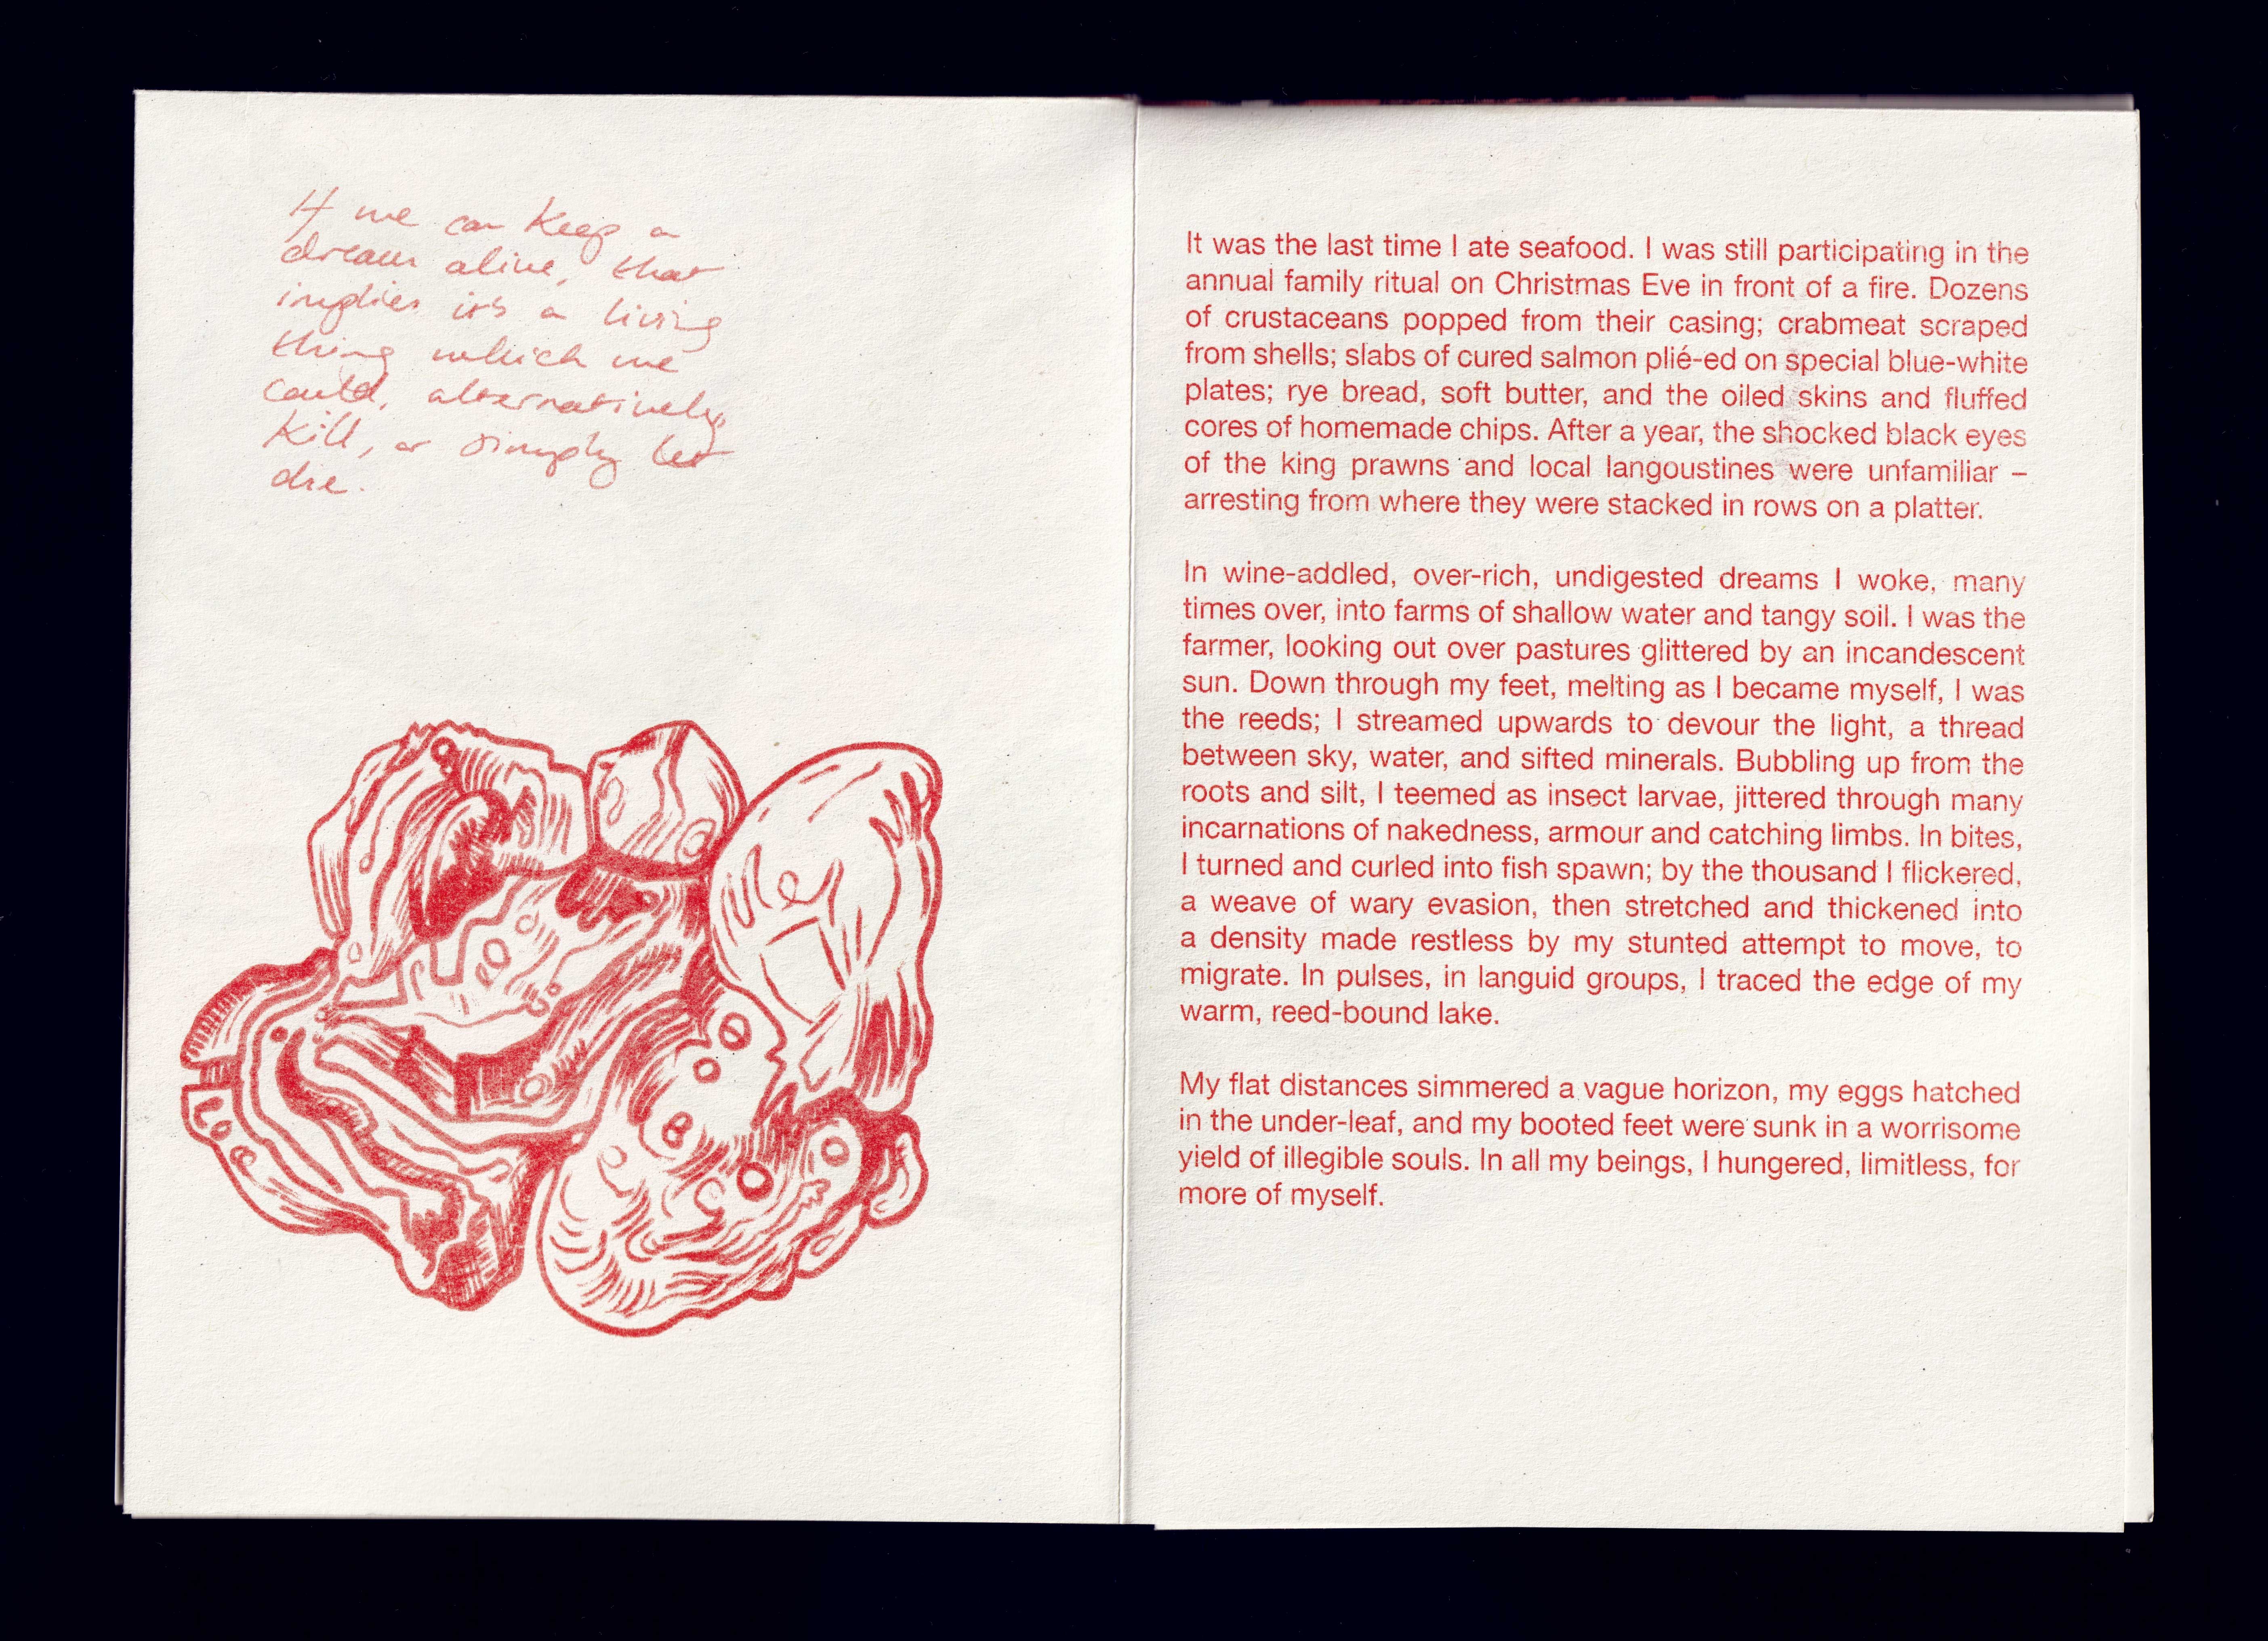 If we can keep a
dream alive, that
implies it's a living
thing which we
could, alternatively,
kill, or simply let
die.
It was the last time I ate seafood. I was still participating in the
annual family ritual on Christmas Eve in front of a fire. Dozens
of crustaceans popped from their casing; crabmeat scraped
from shells; slabs of cured salmon plié-ed on special blue-white
plates; rye bread, soft butter, and the oiled skins and fluffed
cores of homemade chips. After a year, the shocked black eyes
of the king prawns and local langoustines were unfamiliar –
arresting from where they were stacked in rows on a platter.
In wine-addled, over-rich, undigested dreams I woke, many
times over, into farms of shallow water and tangy soil. I was the
farmer, looking out over pastures glittered by an incandescent
sun. Down through my feet, melting as I became myself, I was
the reeds; I streamed upwards to devour the light, a thread
between sky, water, and sifted minerals. Bubbling up from the
roots and silt, I teemed as insect larvae, jittered through many
incarnations of nakedness, armour and catching limbs. In bites,
I turned and curled into fish spawn; by the thousand I flickered,
a weave of wary evasion, then stretched and thickened into
a density made restless by my stunted attempt to move, to
migrate. In pulses, in languid groups, I traced the edge of my
warm, reed-bound lake.
My flat distances simmered a vague horizon, my eggs hatched
in the under-leaf, and my booted feet were sunk in a worrisome
yield of illegible souls. In all my beings, I hungered, limitless, for
more of myself.